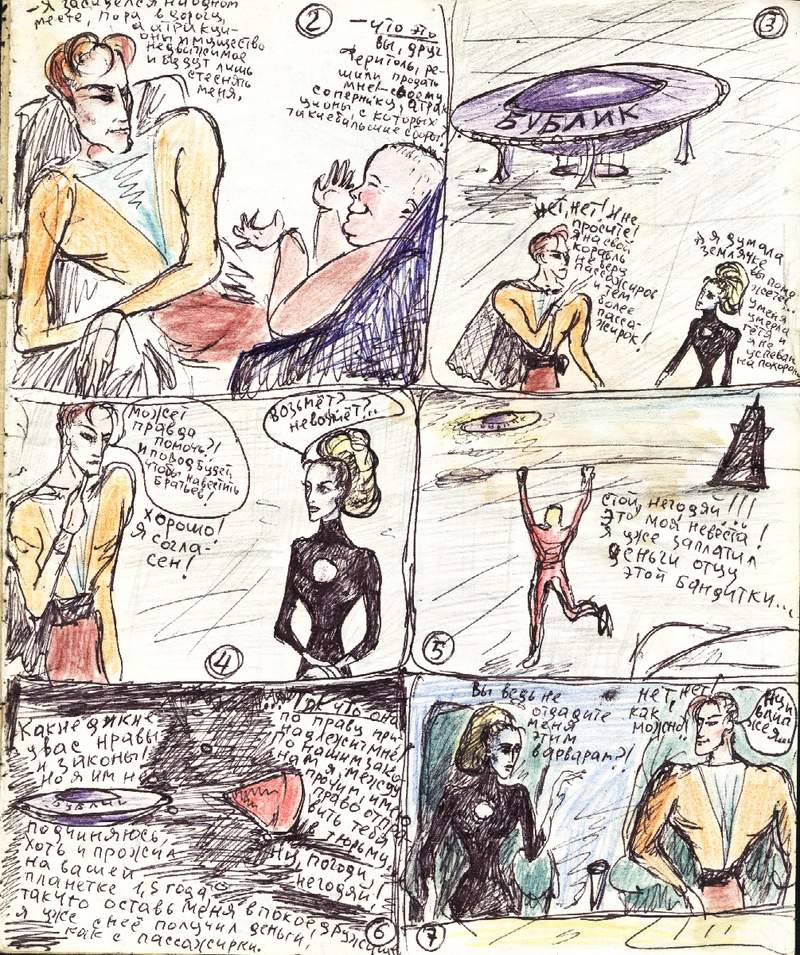 2
- Я засиделся на одном
месте, пора в дорогу,
а атракци-
оны имущество
недвижимое
и будут лишь
стеснять
меня.
- Что это
вы, друг
Феритоль, ре-
шили продать
мне - своему
сопернику, атрак
ционы, с которых
такие большие сборы?
3
БУБЛИК
Нет, нет! И не
просите!
Я на свой
корабль
не беру
пассажиров
и тем
более
пасса-
жирок!
Я думала
землячке
вы помо
жете...
у меня
умерла
тётя и
я не
успеваю
на похороны
Может
правда
помочь?!
И повод будет,
чтобы навестить
братьев!
Хорошо!
Я согла-
сен!
Возьмёт?
Не возьмёт?..
4
Стой, негодяй!!!
Это моя невеста!
Я уже заплатил
деньги отцу
этой бандитки...
5
Какие дикие
у вас нравы
и законы!
Но я им не
БУБЛИК
подчиняюсь,
хоть и прожил
на вашей
планетке 1,5 года,
так что оставь меня в покое, дружище
я уже с неё получил деньги,
как с пассажирки.
... Так что она
по праву при-
надлежит мне!
По нашим зако-
нам я, между
прочим, имею
право отпра
вить тебя
в тюрьму.
Ну, погоди!
негодяй!
6
Вы ведь не
отдадите
меня
этим
варварам?!
Нет, нет!
как
можно!
Ну и
влип
же я...
7